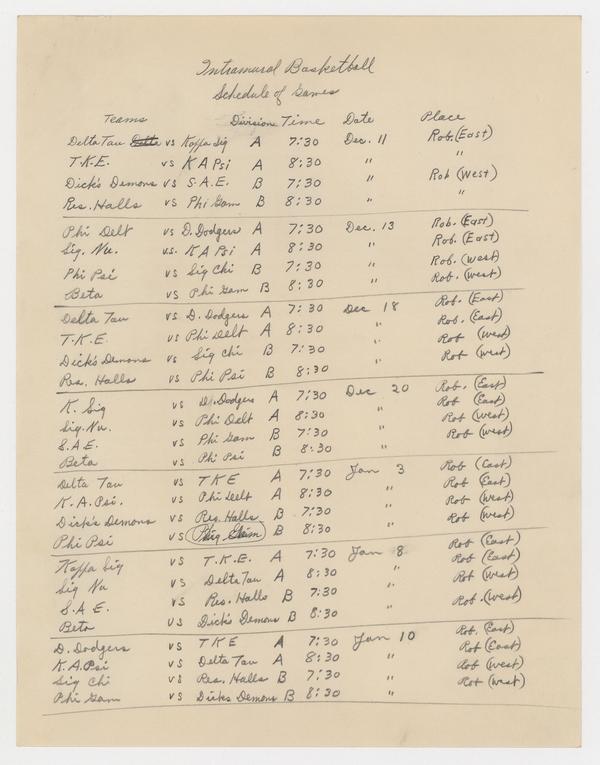 Intramural Basketball
Schedule of Games
Teams Division Time Date Place
Delta Tau Delta vs Kappa Sig A 7:30 Dec. 11 Rob. (East)
T.K.E. vs K A Psi A 8:30 " "
Dick's Demons vs S.A.E. B 7:30 " Rob (West)
Res. Halls vs Phi Gam B 8:30 " "
Phi Delt vs D. Dodgers A 7:30 Dec. 13 Rob. (East)
Sig. Nu. vs. K A Psi A 8:30 " Rob. (East)
Phi Psi vs Sig Chi B 7:30 " Rob. (West)
Beta vs Phi Gam B 8:30 " Rob. (West)
Delta Tau vs D. Dodgers A 7:30 Dec 18 Rob. (East)
T.K.E. vs Phi Delt A 8:30 " Rob. (East)
Dick's Demons vs Sig Chi B 7:30 " Rob (West)
Res. Halls vs Phi Psi B 8:30 " Rob (West)
K. Sig vs D. Dodgers A 7:30 Dec 20 Rob. (East)
Sig. Nu. vs Phi Delt A 8:30 " Rob (East)
S.A.E. vs Phi Gam B 7:30 " Rob (West)
Beta vs Phi Psi B 8:30 " Rob (West)
Delta Tau vs TKE A 7:30 Jan 3 Rob (East)
K.A. Psi. vs Phi Delt A 8:30 " Rob (East)
Dick's Demons vs Res. Halls B 7:30 " Rob (West)
Phi Psi vs B 8:30 " Rob (West)
Kappa Sig vs T.K.E. A 7:30 Jan 8 Rob (East)
Sig Nu vs Delta Tau A 8:30 " Rob (East)
S.A.E. vs Res. Halls B 7:30 " Rob (West)
Beta vs Dick's Demons B 8:30 " Rob. (West)
D. Dodgers vs TKE A 7:30 Jan 10 Rob. (East)
K.A. Psi vs Delta Tau A 8:30 " Rob (East)
Sig Chi vs Res. Halls B 7:30 " Rob (West)
Phi Gam vs Dicks Demons B 8:30 " Rob (West)